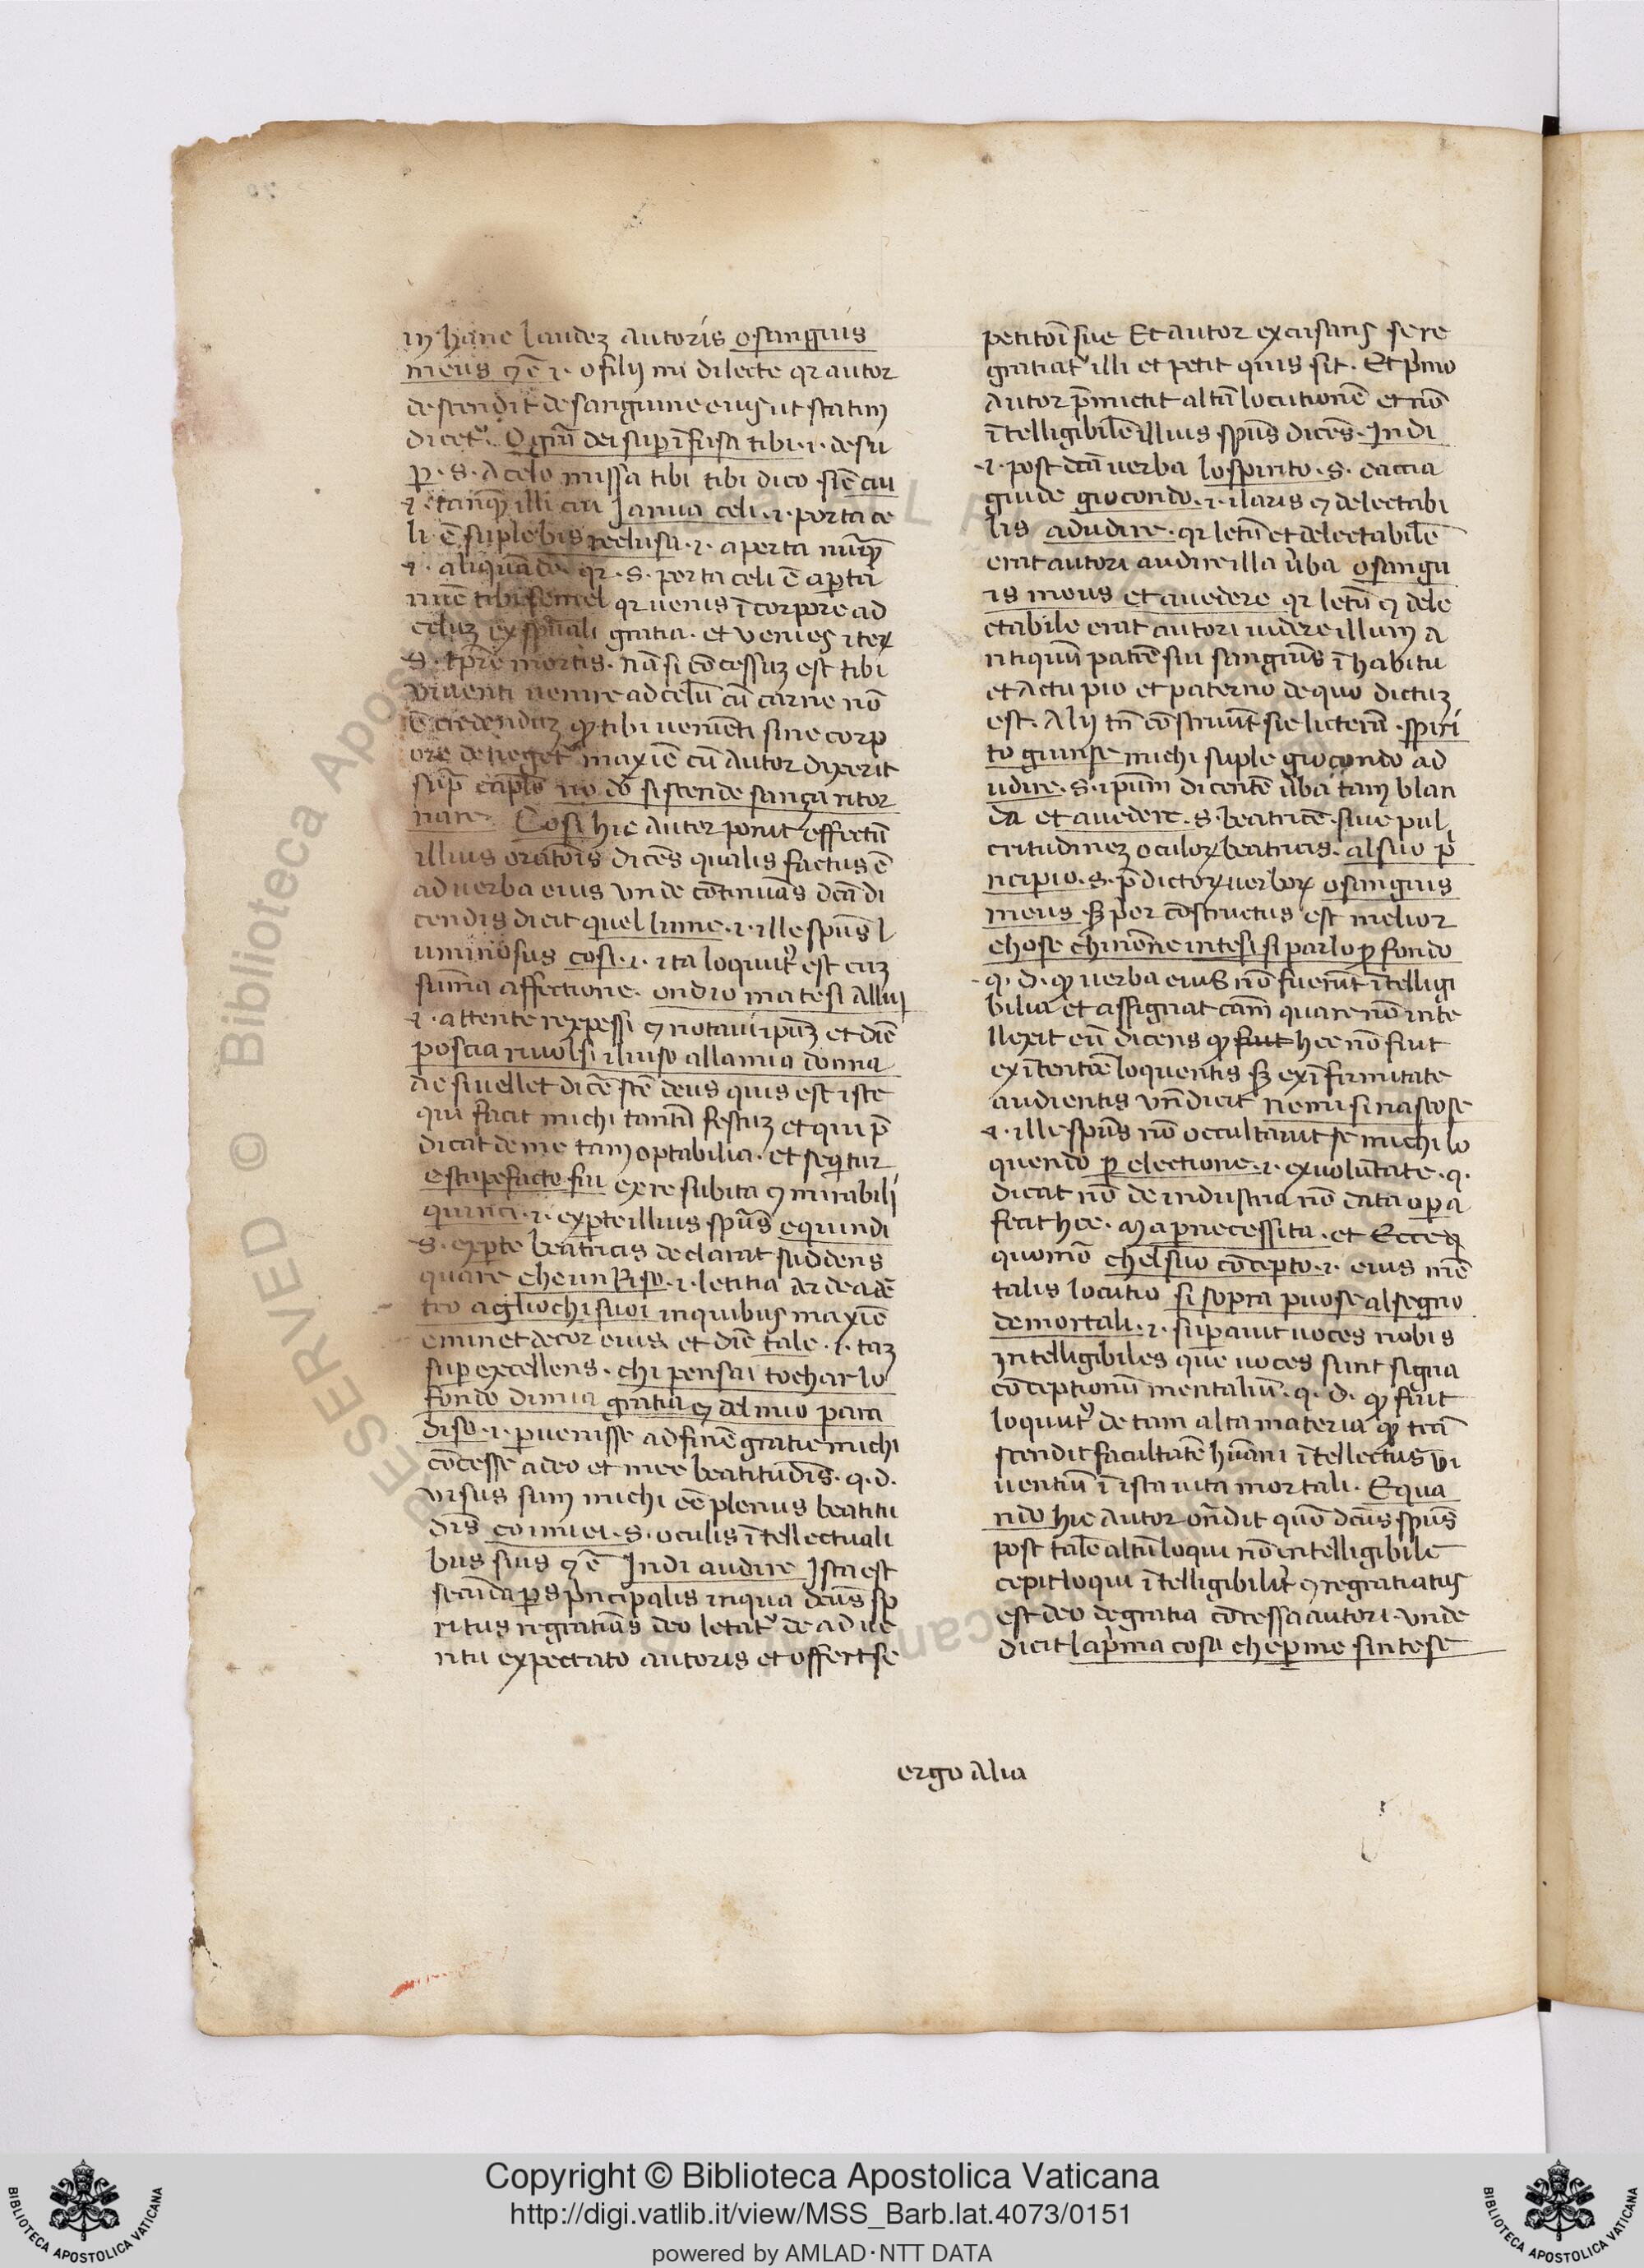 in hanc laudez autoris o sanguis
meus ⁊ c̄ .i. o filij mi dilecte qr autor
descendit de sanguine eius ut statim
dicet᷑. O grā dei superīfusa tibi .i. desu
per .s. a celo missa tibi tibi dico sic̄ cui
.i. tanq̄ illi cui Janua celi .i. porta ce
li ē suple bis reclusa .i. aperta nūq̄
.i. aliquādo qr .s. porta celi ē aperta
nūc tibi semel qr venis ī corpore ad
celuz ex spūali gratia. et venies iter
.s. tpre mortis. nā si cōcessuz est tibi
viventi venire ad celū cū carne nō
ē credenduz qđ tibi veniēti sine corp
ore deneget᷑ maxīe cū Autor dixerit
sup̄ caplo
nare. Cosi hic Autor ponit effectū
illius oratōis dicēs qualis factus ē
ad verba eius unde cōtinuās dcā di
cendis dicit quel lume .i. ille spūs l
uminosus cosi .i. ita loquut᷑ est cuz
sūma affectione. ond io matesi allui
.i. attente respessi ⁊ notavi ipūz et dic̄
poscia rivolsi il viso alla mia donna
ac si vellet dicē stē deus quis est iste
qui facit michi tantū festuz et qui p̄
dicat de me tam optabilia. et seq̄tur
e stupefacto fui ex re subita ⁊ mirabili
quinci .i. ex pte illius spūs e quindi
.s. ex pte beatricis declarat suddens
quare che un Riso .i. letitia ardea dē
tro agliochi suoi in quibus maxīe
eminet decor eius et dic̄ tale .i. taz
superexcellens. chi pensai tochar lo
fondo di mia gratia ⁊ del mio para
diso .i. pervenisse ad finē gratie michi
cōcesse a deo et mee beatitudīs. q.d.
visus sum michi eē plenus beatitu
dīs co i miei .s. oculis ītellectuali
bus suis ⁊ c̄ Indi audire Ista est
secūda pars pricipalis in qua dcūs sp̄
ritus regratiās deo letat᷑ de adve
ntu expectato autoris et offert se
petitōi sue Et Autor excusans se re
gratiat᷑ illi et petit quis sit. Et p̄mo
Autor p̄mictit altā locutionē et nō
ītelligibilē illius spūs dicēs. Indi
.i. post dcā verba lo spirito .s. caccia
guide giocondo .i. ilaris ⁊ delectabi
lis ad udire. qr letū et delectabilē
erat autori audire illa v̄ba o sangu
is meus et a vedere qr letū ⁊ dele
ctabile erat autori videre illum a
ntiquū patrē sui sanguīs ī habitu
et actu pio et paterno de quo dictuz
est. Alij tn̄ cōstruūt sic licterā. spiri
to giunse michi suple giocondo ad
udire .s. ipsum dicentē v̄ba tam blan
da et a vedere .s. beatricē sive pul
critudinez oculorꝝ beatricis. al suo p̄
ncipio .s. p̄dictorꝝ verborꝝ o sanguis
meus. sꝫ p̄or cōstructus est melior
chose ch'i nō ne intesi si parlo p̄ fondo
q.d. qđ verba eius nō fuerūt ītelligi
bilia et assignat cām quare nō inte
llexit eū dicens qđ fuit hec nō fuit
ex ītentōe loquentis sꝫ ex īfirmitate
audientis vn̄ dicit ne mi si nascose
.i. ille spūs nō occultavit se michi lo
quendo per electione .i. ex volūtate. q.
dicat nō de industria nō data opera
fecit hec. Ma p necessita. et Ecce q̄
quomō che'l suo cōcepto .i. eius mē
talis locutio si sopra puose al segno
de mortali .i. superavit voces nobis
intelligibiles que voces sunt signa
cōceptionū mentaliū. q.d. qđ fuit
loquut᷑ de tam alta materia qđ trā
scendit facultatē hūani ītellectus vi
ventiū ī ista vita mortali. E qua
ndo hic autor ōndit quō dcūs spūs
post talē altū loqui nō entelligibile
cepit loqui ītelligibilit̄ ⁊ regratiatus
est deo de gratia cōcessa autori. unde
dicit la p̄ma cosa che per me s'intese
ergo alia
Copyright © Biblioteca Apostolica Vaticana
http://digi.vatlib.it/view/MSS_Barb.lat.4073/0151
powered by AMLAD·NTT DATA
BIBLIOTECA APOSTOLICA VATICANA
BIBLIOTECA APOSTOLICA VATICANA